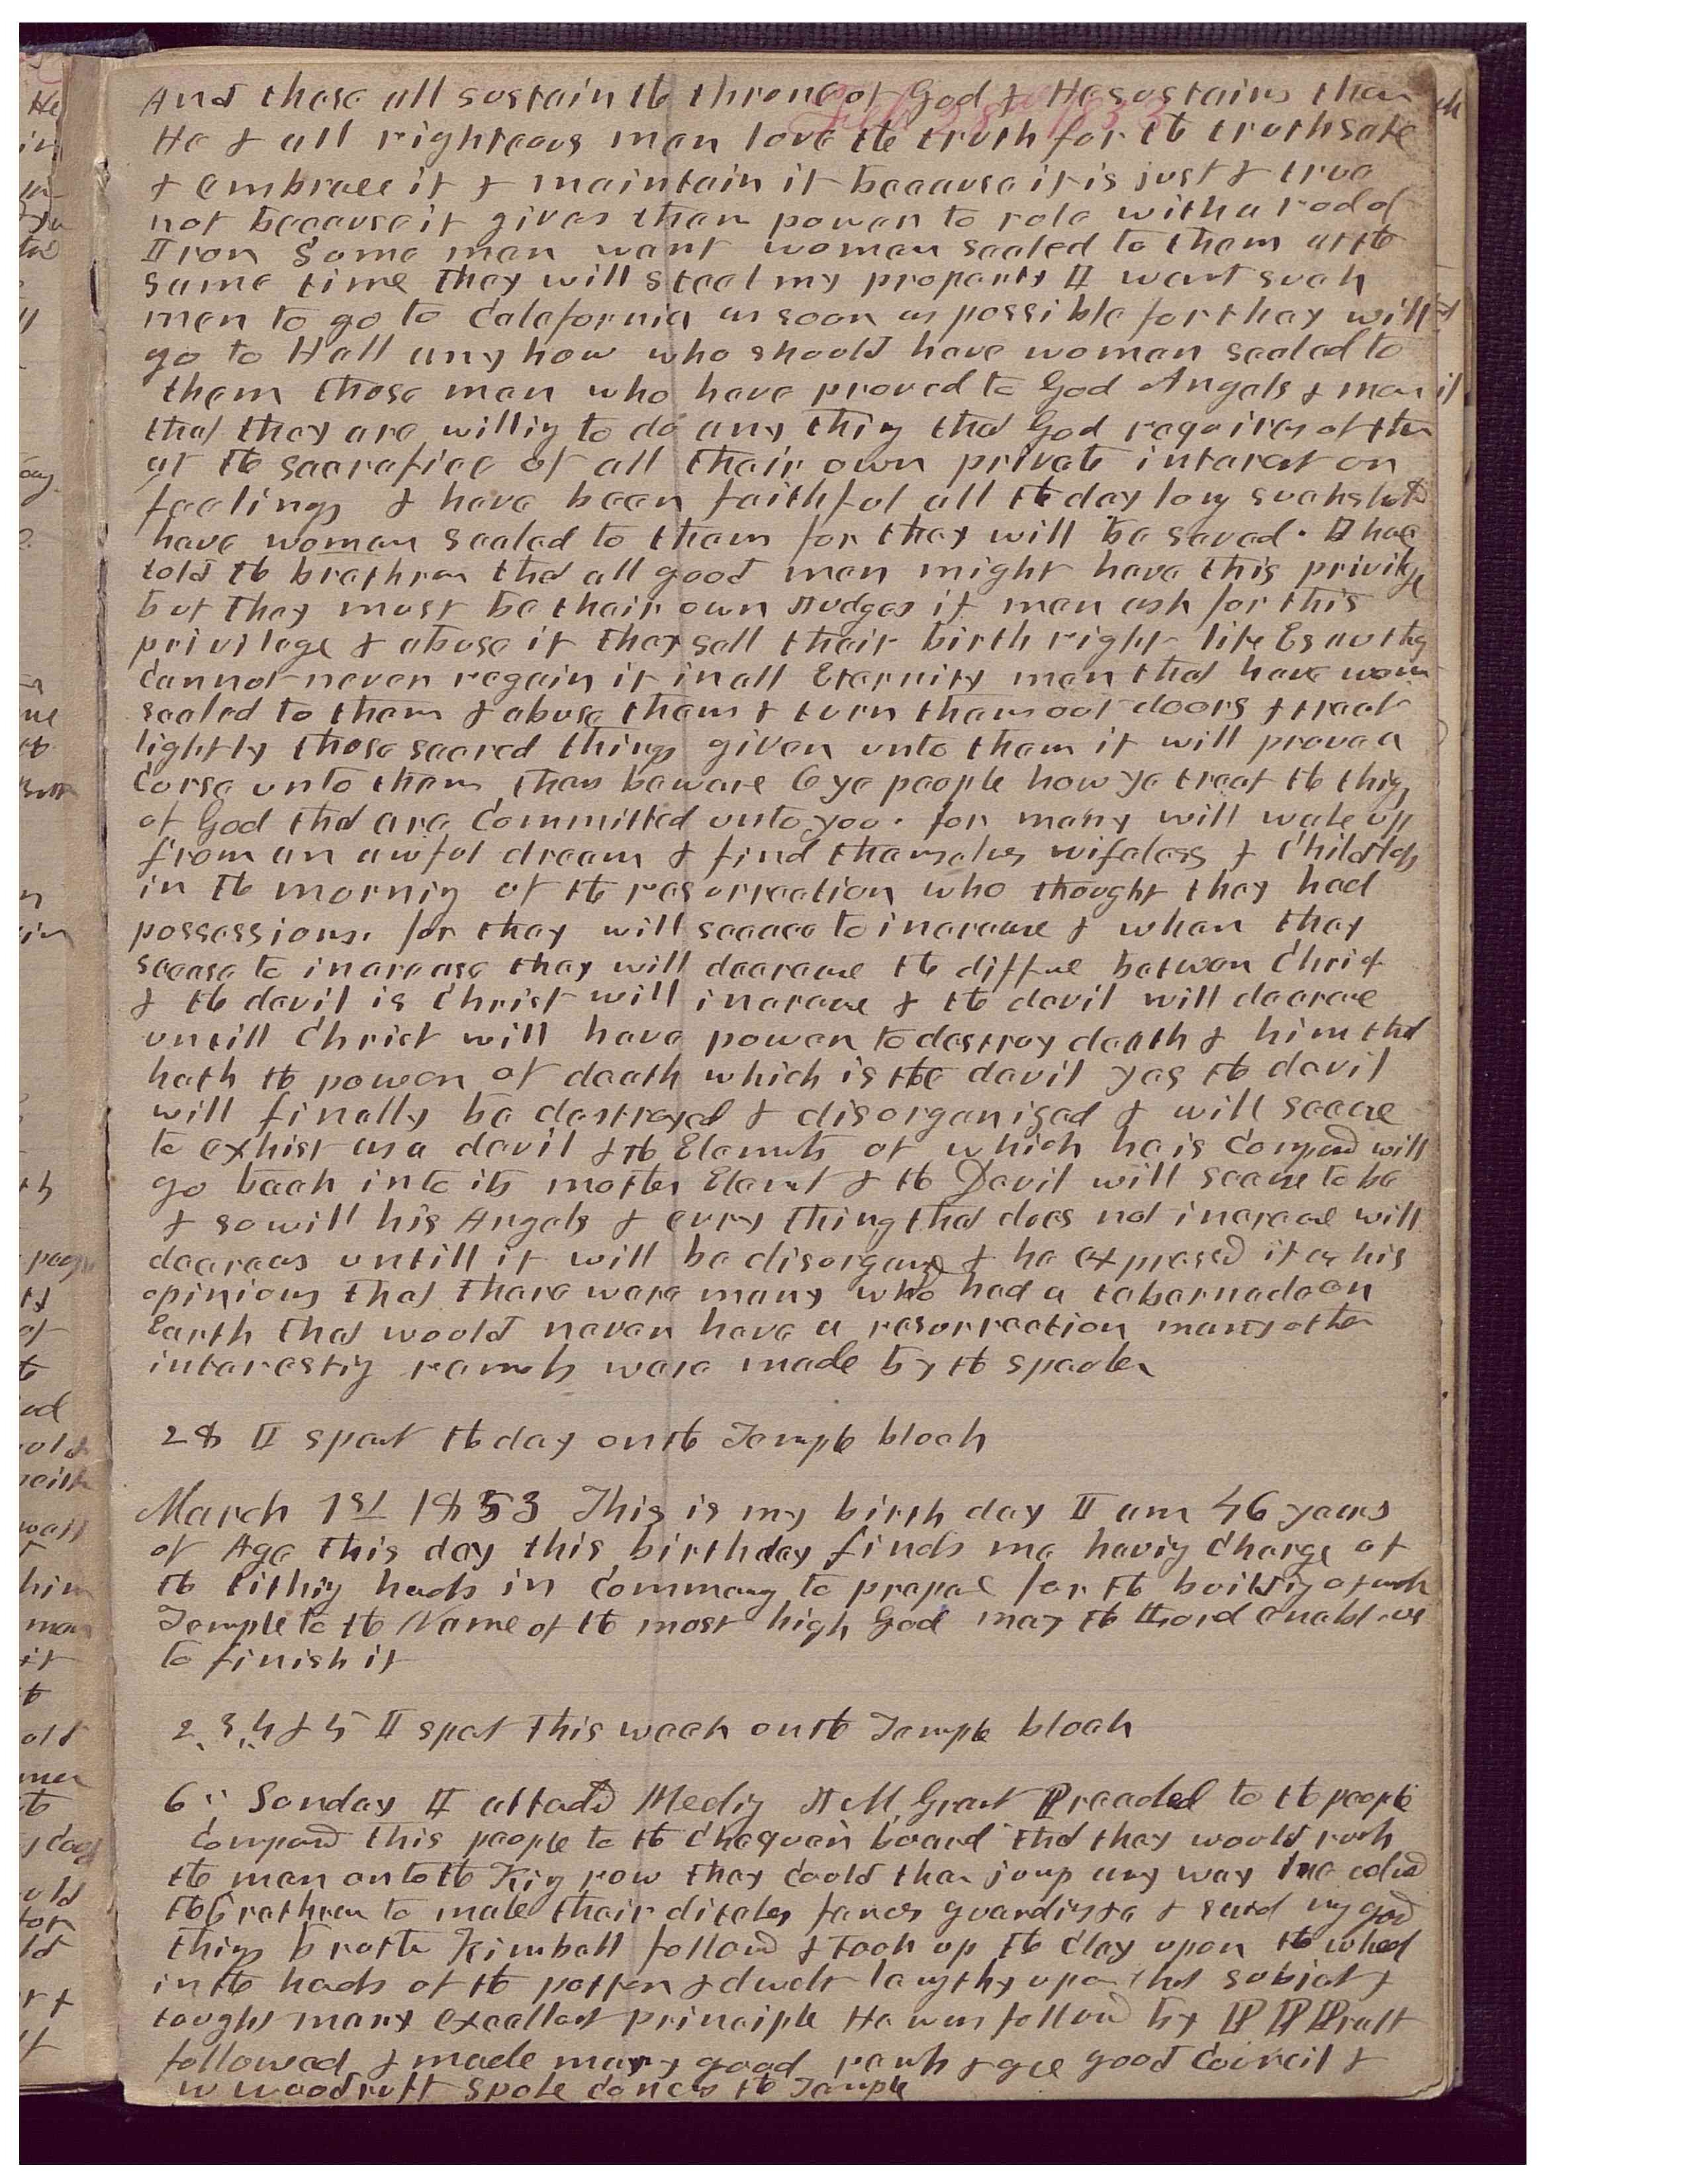 And these all sustain the throne of God & He sustains them
He & all righteous men love the truth for the truth sake
& embrace it & maintain it because it is just & true
not because it gives them power to rule with a rod of
Iron Some men want women sealed to them at the
same time they will steal my property I want such
men to go to Calafornia as soon as possible for they will
go to Hell any how who should have women sealed to
them those men who have proved to God Angels & men
that they are willig to do any thig that God requires of them
at the sacrafice of all their own private interest or
feelings & have been faithful all the day long such should
have women sealed to them for they will be saved. I have
told the brethren that all good men might have this privilege
but they must be their own Judges if men ask for this
privilege & abuse it they sell their birth right like Esau they
Cannot never regain it in all Eternity men that have women
sealed to them & abuse them & turn them out doors & treat
lightly those sacred things given unto them it will prove a
Curse unto them then beware O ye people how ye treat the thigs
of God that are Committed unto you. for many will wake up
from an awful dream & find themselves wifeless & Childless
in the mornig of the resurrection who thought they had
possessions. for they will seecece to increase & when they
seease to increase they will decrease the diffrence between Christ
& the devil is Christ will increase & the devil will decrease
untill Christ will have power to destroy death & him that
hath the power of death which is the devil yes the devil
will finally be destroyed & disorganized & will seease
to exhist as a devil & the Elements of which he is Composed will
go back into its mother Element & the Devil will seease to be
& so will his Angels & evry thing that does not increase will
decreas untill it will be disorganized & he expressed it as his
opinions that there were many who had a tabernacle on
Earth that would never have a resurrection many other
interestig remarks were made by the speaker
28 I spent the day on the Temple block
March 1st 1853 This is my birth day I am 46 years
of Age this day this birthday finds me havig Charge of
the tithig hands in Commencing to prepare for the buildig of
Temple to the Name of the most high God may the Lord enable us
to finish it
2. 3. 4 & 5 I spent this week on the Temple block
6" Sunday I attended Meetig J M. Grant Preached to the people
Compared this people to the Chequer board that they would rush
the men on to the Kig row they Could then jump any way
the Brethren to make their ditches fences guardigs &c & said my good
things brother Kimball followed & took up the Clay upon the wheel
in the hands of the potter & dwelt lengthy upon that subject &
taught many excellent principle He was followed by P P Pratt
followed & made many good remarks & gave good Council &
W Woodruff spoke Concerng the Temple